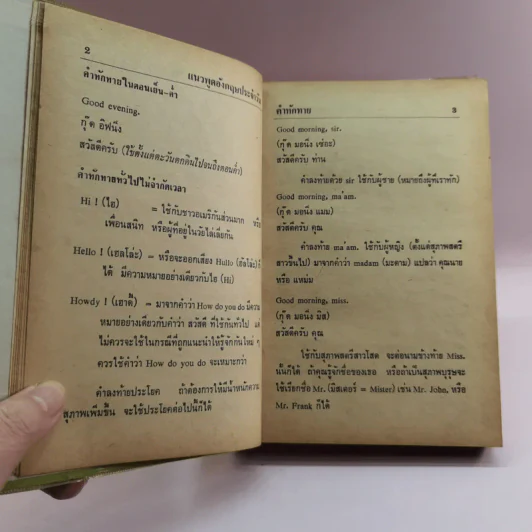 2
แนวพูดอังกฤษประจำวัน
คำทักทายในตอนเย็น-ค่ำ
Good evening.
กุ๊ด อีฟนึง
สวัสดีครับ (ใช้ตั้งแต่ตะวันตกดินไปจนถึงตอนค่ำ)
คำทักทายทั่วไปไม่จำกัดเวลา
Hi ! (ไฮ) = ใช้กับชาวอเมริกันส่วนมาก หรือ
เพื่อนสนิท หรือผู้ที่อยู่ในวัยไล่เลี่ยกัน
Hello ! (เฮลโล่ะ) = หรือจะออกเสียง Hullo (ฮัลโล่) ก็
ได้ มีความหมายอย่างเดียวกับไฮ (Hi)
Howdy ! (เฮาดี้) = มาจากคำว่า How do you do มีความ
หมายอย่างเดียวกับคำว่า สวัสดี ที่ใช้กันทั่วไป แต่
ไม่ควรจะใช้ในกรณีที่ถูกแนะนำให้รู้จักกันใหม่ ๆ
ควรใช้คำว่า How do you do จะเหมาะกว่า
คำลงท้ายประโยค ถ้าต้องการให้มีน้ำหนักความ
สุภาพเพิ่มขึ้น จะใช้ประโยคต่อไปนี้ก็ได้
คำทักทาย
3
Good morning, sir.
(กุ๊ด มอนึง เซ่อะ)
สวัสดีครับ ท่าน
คำลงท้ายด้วย sir ใช้กับผู้ชาย (หมายถึงผู้ที่เราทัก)
Good morning, ma'am.
(กุ๊ด มอนึง แมม)
สวัสดีครับ คุณ
คำลงท้าย ma'am. ใช้กับผู้หญิง (ตั้งแต่สุภาพสตรี
สาวขึ้นไป) มาจากคำว่า madam (มะดาม) แปลว่า คุณนาย
หรือ แหม่ม
Good morning, miss.
(กุ๊ด มอนึง มิส)
สวัสดีครับ คุณ
ใช้กับสุภาพสตรีสาวโสด จะต่อนามข้างท้าย Miss.
นั้นก็ได้ ถ้าคุณรู้จักชื่อของเธอ หรือถ้าเป็นสุภาพบุรุษจะ
ใช้เรียกชื่อ Mr. (มิสเตอร์ = Mister) เช่น Mr. John, หรือ
Mr. Frank ก็ได้